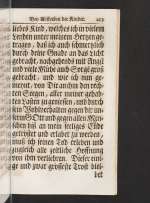 Bey Absterben der Kinder. 203
liebes Kind, welches ich in diesem
Leyden unter meinem Hertzen ge-
tragen, das ich auch schmertzlich
durch deine Gnade an das Licht
gebracht, nachgehends mit Angst
und viele Mühe auch Sorge groß
gebracht, und wie ich nun ge-
meynt, von Dir an ihm den rech-
ten Seegen, aller meiner gehab-
ten Lasten zu geniessen, und durch
sein Wohlverhalten gegen dir un-
serm Gott und gegen allen Men-
schen biß an mein seeliges Ende
getröstet und erlabet zu werden,
muß ich seinen Tod erleben und
zugleich alle zeitliche Hoffnung
von ihm verliehren. Dieser eini-
ge und zwar grösseste Trost blei-
bet